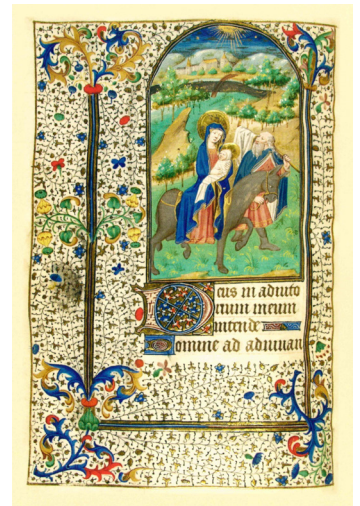 Deus in adiuto
rium meum
intende
Domine ad adiuuan